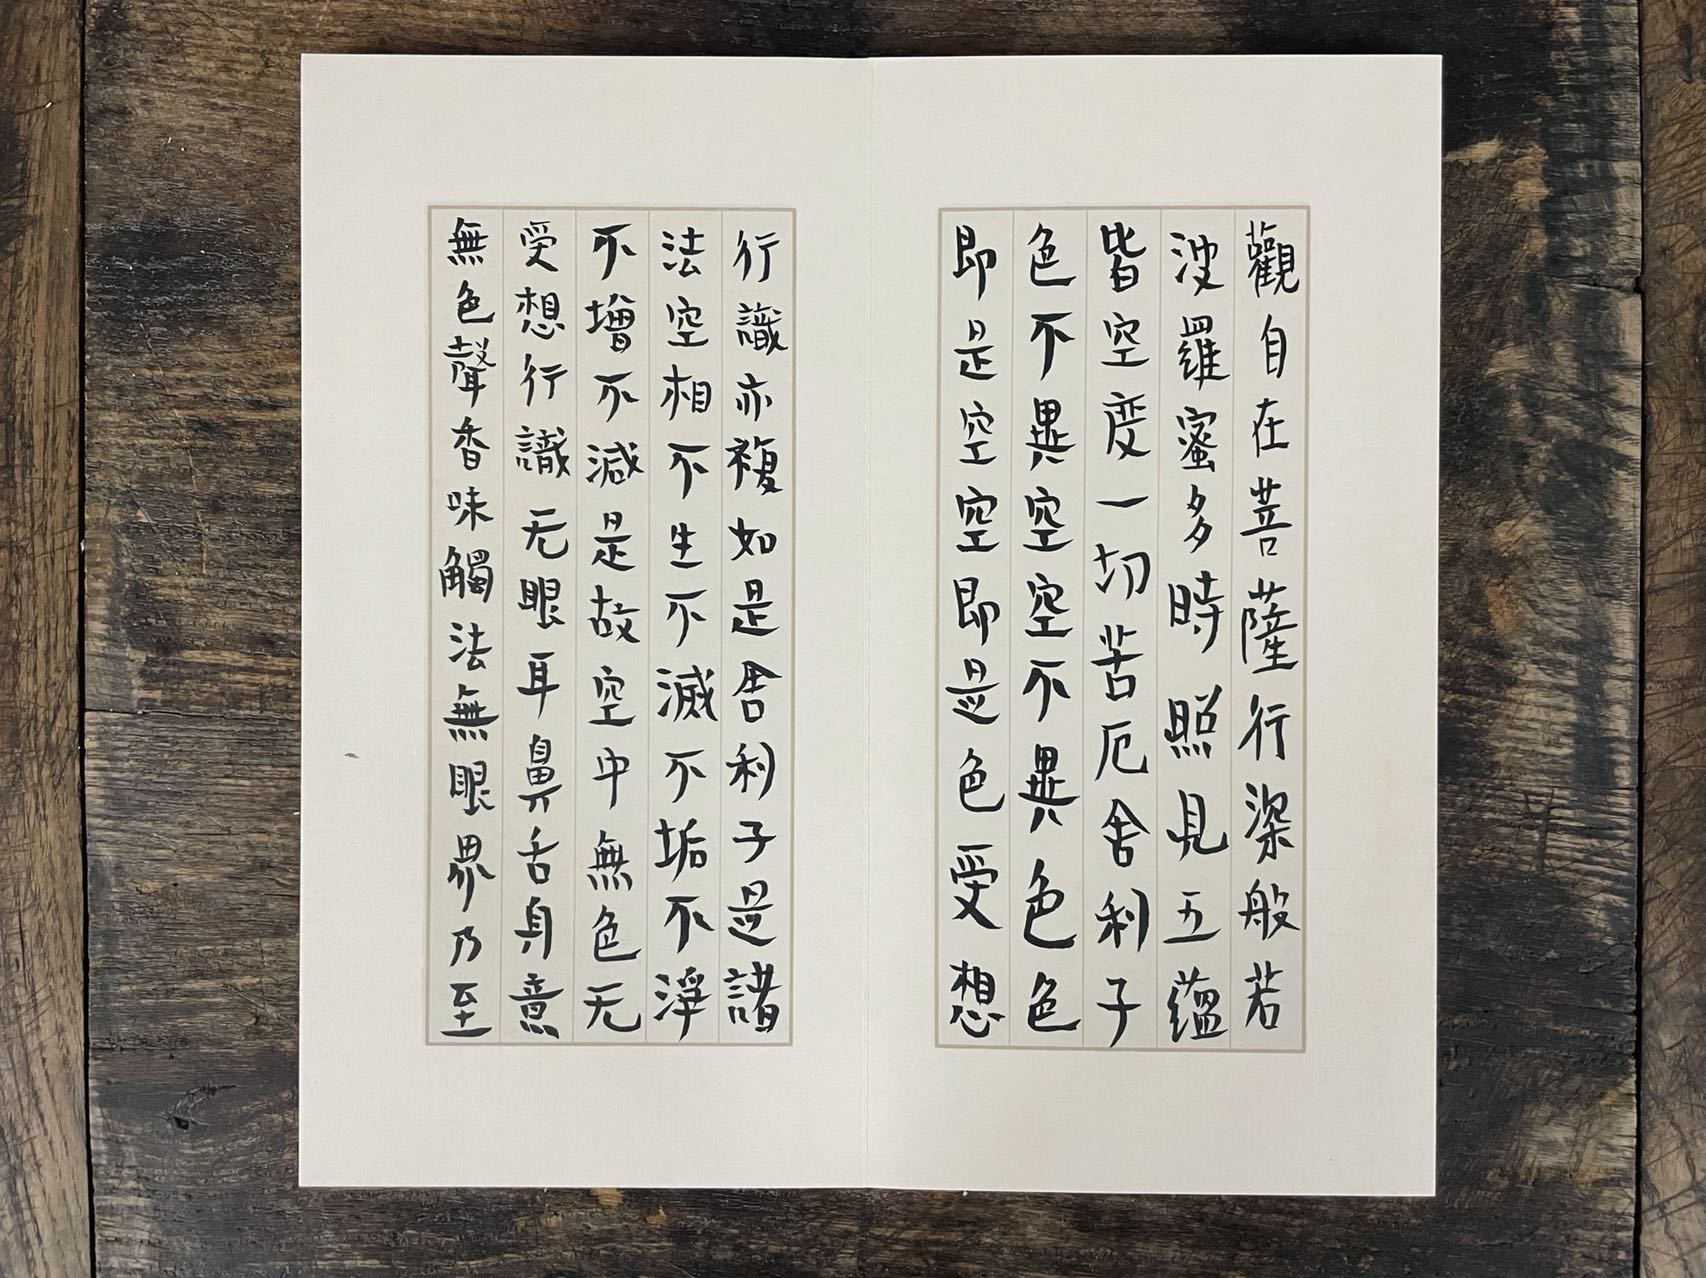 觀自在菩薩行深般若
波羅蜜多時照見五蘊
皆空度一切苦厄舍利子
色不異空空不異色色
即是空空即是色受想
行識亦複如是舍利子是諸
法空相不生不滅不垢不淨
不增不減是故空中無色无
受想行識无眼耳鼻舌身意
無色聲香味觸法無眼界乃至